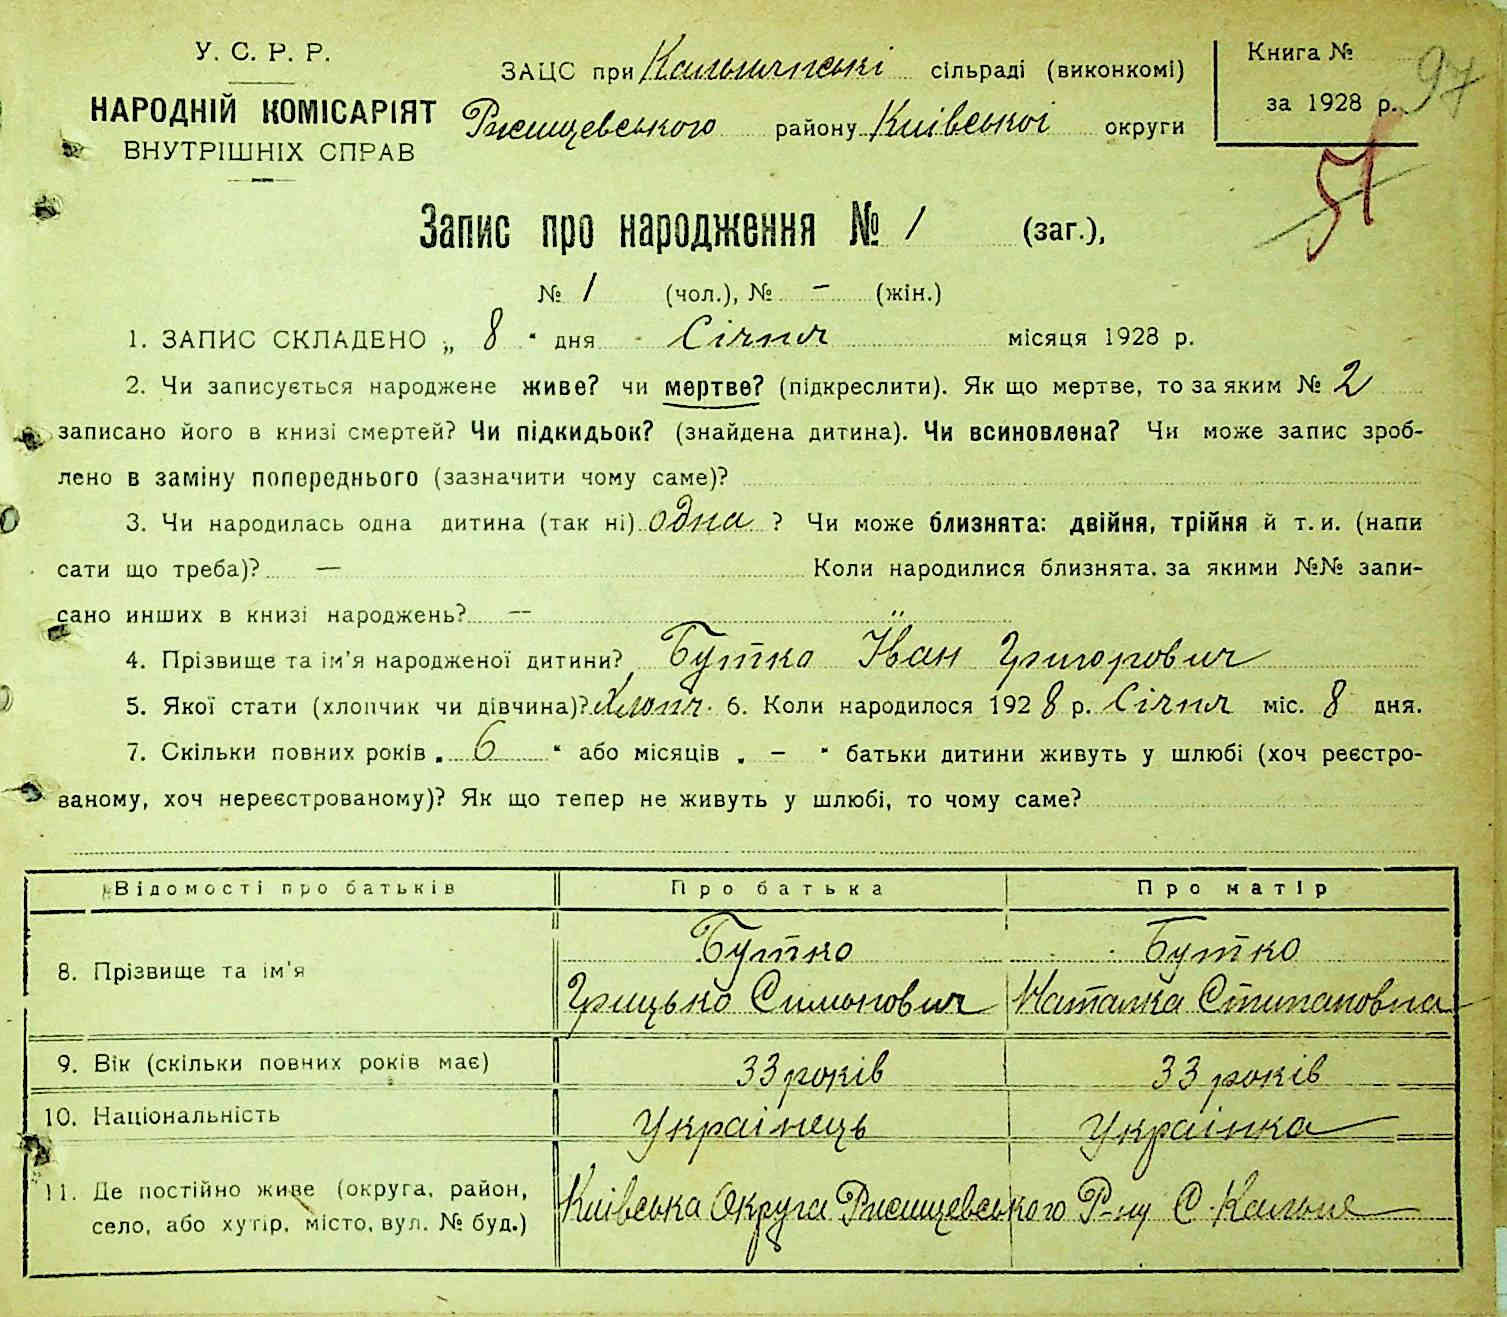 У. С. Р. Р.
НАРОДНІЙ КОМІСАРІЯТ
ВНУТРІШНІХ СПРАВ
ЗАЦС при Кальнянські сільраді (виконкомі)
Ржищевського району Київської округи
Книга №
за 1928 р.
97
51
Запис про народження № 1 (заг.),
№ 1 (чол.), № – (жін.)
1. ЗАПИС СКЛАДЕНО „ 8 “ дня Січня місяця 1928 р.
2. Чи записується народжене живе? чи мертве? (підкреслити). Як що мертве, то за яким № 2
записано його в книзі смертей? Чи підкидьок? (знайдена дитина). Чи всиновлена? Чи може запис зроб-
лено в заміну попереднього (зазначити чому саме)?
3. Чи народилась одна дитина (так ні) одна ? Чи може близнята: двійня, трійня й т. и. (напи
сати що треба)? — Коли народилися близнята, за якими №№ запи-
сано инших в книзі народжень? —
4. Прізвище та ім'я народженої дитини? Бутко Іван Григорович
5. Якої стати (хлопчик чи дівчина)? Хлопч. 6. Коли народилося 1928 р. Січня міс. 8 дня.
7. Скільки повних років „ 6 “ або місяців „ – “ батьки дитини живуть у шлюбі (хоч реєстро-
ваному, хоч нереєстрованому)? Як що тепер не живуть у шлюбі, то чому саме?
Відомості про батьків Про батька Про матір
8. Прізвище та ім'я Бутко Бутко
Грицько Симонович Наталка Стипановна
9. Вік (скільки повних років має) 33 років 33 років
10. Національність Українець Українка
11. Де постійно живе (округа, район,
село, або хутір, місто, вул. № буд.) Київська Округа Ржищевського Р-ну С. Кальне